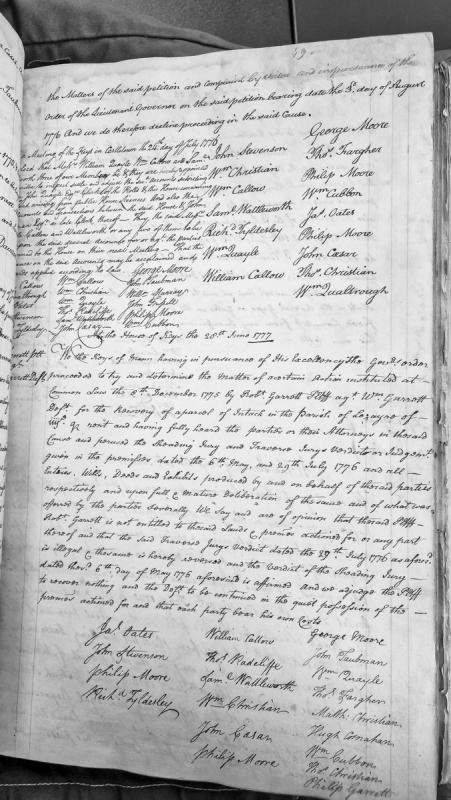 49.
the Matters of the said petition and Complaint by virtue and in pursuance of the
order of the Lieutenant Governor on the said petition bearing date the 8th day of August
1776 And we do therefore decline proceeding in the said Cause.
George Moore
Thos. Fargher
Philip Moore
Wm Cubbon
Jas. Oates
Philip Moore
John Cæsar
Thos. Christian
Wm Qualtrough
John Stevenson
Wm Christian
Wm Callow
Saml. Wattleworth
Richd. Tyldesley
Wm Quayle
William Callow
a Meeting of the Keys in Castletown the 24 day of July 1776
that Messrs William Quayle Wm Callow and Saml.
or three of our Members be & they are
to inspect settle and adjust the
public House
accounts and transactions between the said House & John
Esqr. late
Callow and Wattleworth or any two of them
upon the said several Accounts
to the House on their next Meeting. That the
on the said Accounts may be ascertained and
applied according to Law
George Moore
Wm Callow
Wm Christian
Wm Quayle
Thos. Radcliffe
Saml. Wattleworth
John Cæsar
John Taubman
Philip Moore
Wm Cubbon
At the House of Keys the 28th June 1777
We the Keys of Mann having in pursuance of His Excellency the Govrs. order
proceeded to try and determine the matter of a certain Action instituted at
Common Law the 8th December 1775 by Robt. Garrett Pltff agt. Wm Garrett
Deft. for the Recovery of a parcel of Intack in the Parish of Lezayre of
rent and having fully heard the parties or their Attorneys in the said
Cause and perused the Sheading Jury and Traverse Jurys Verdicts or Judgemts.
given in the premisses dated the 6th May, and 29th July 1776 and all
Entries, Wills, Deeds and Exhibits produced by and on behalf of the said parties
respectively and upon full & Mature Deliberation of the cause and of what was
offered by the parties severally We say and are of opinion that the said Pltff
Robt. Garrett is not entitled to the said Lands & premes. actioned for or any part
thereof and that the said Traverse Jurys Verdict dated the 29th July 1776 as aforesd.
is illegal & the same is hereby reversed and the Verdict of the Sheading Jury
dated the 6th day of May 1776 aforesaid is affirmed and we adjudge the Pltff
to recover nothing and the Deft. to be continued in the quiet possession of the
premes. actioned for and that each party bear his own Costs
Jas. Oates
John Stevenson
Philip Moore
Richd. Tyldesley
William Callow
Thos. Radcliffe
Saml. Wattleworth
Wm Christian
John Cæsar
Philip Moore
George Moore
John Taubman
Wm Quayle
Thos. Fargher
Matth. Christian
Hugh Cosnahan
Wm Cubbon
Thos. Christian
Philip Garrett